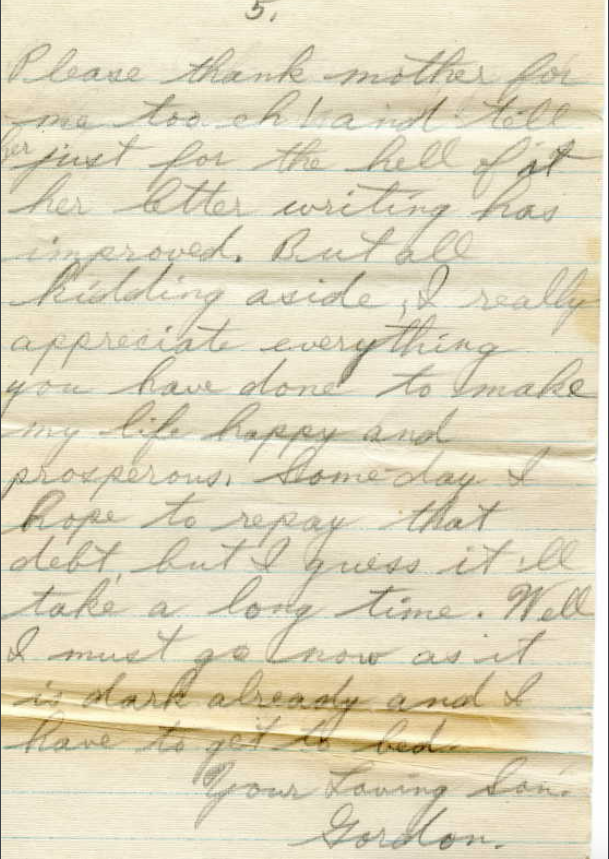 5.
Please thank mother for
me too eh! and tell
her just for the hell of it
her letter writing has
improved. But all
kidding aside, I really
appreciate everything
you have done to make
my life happy and
prosperous. Someday I
hope to repay that
debt, but I guess it'll
take a long time. Well
I must go now as it
is dark already and I
have to get to bed.
Your Loving Son.
Gordon.